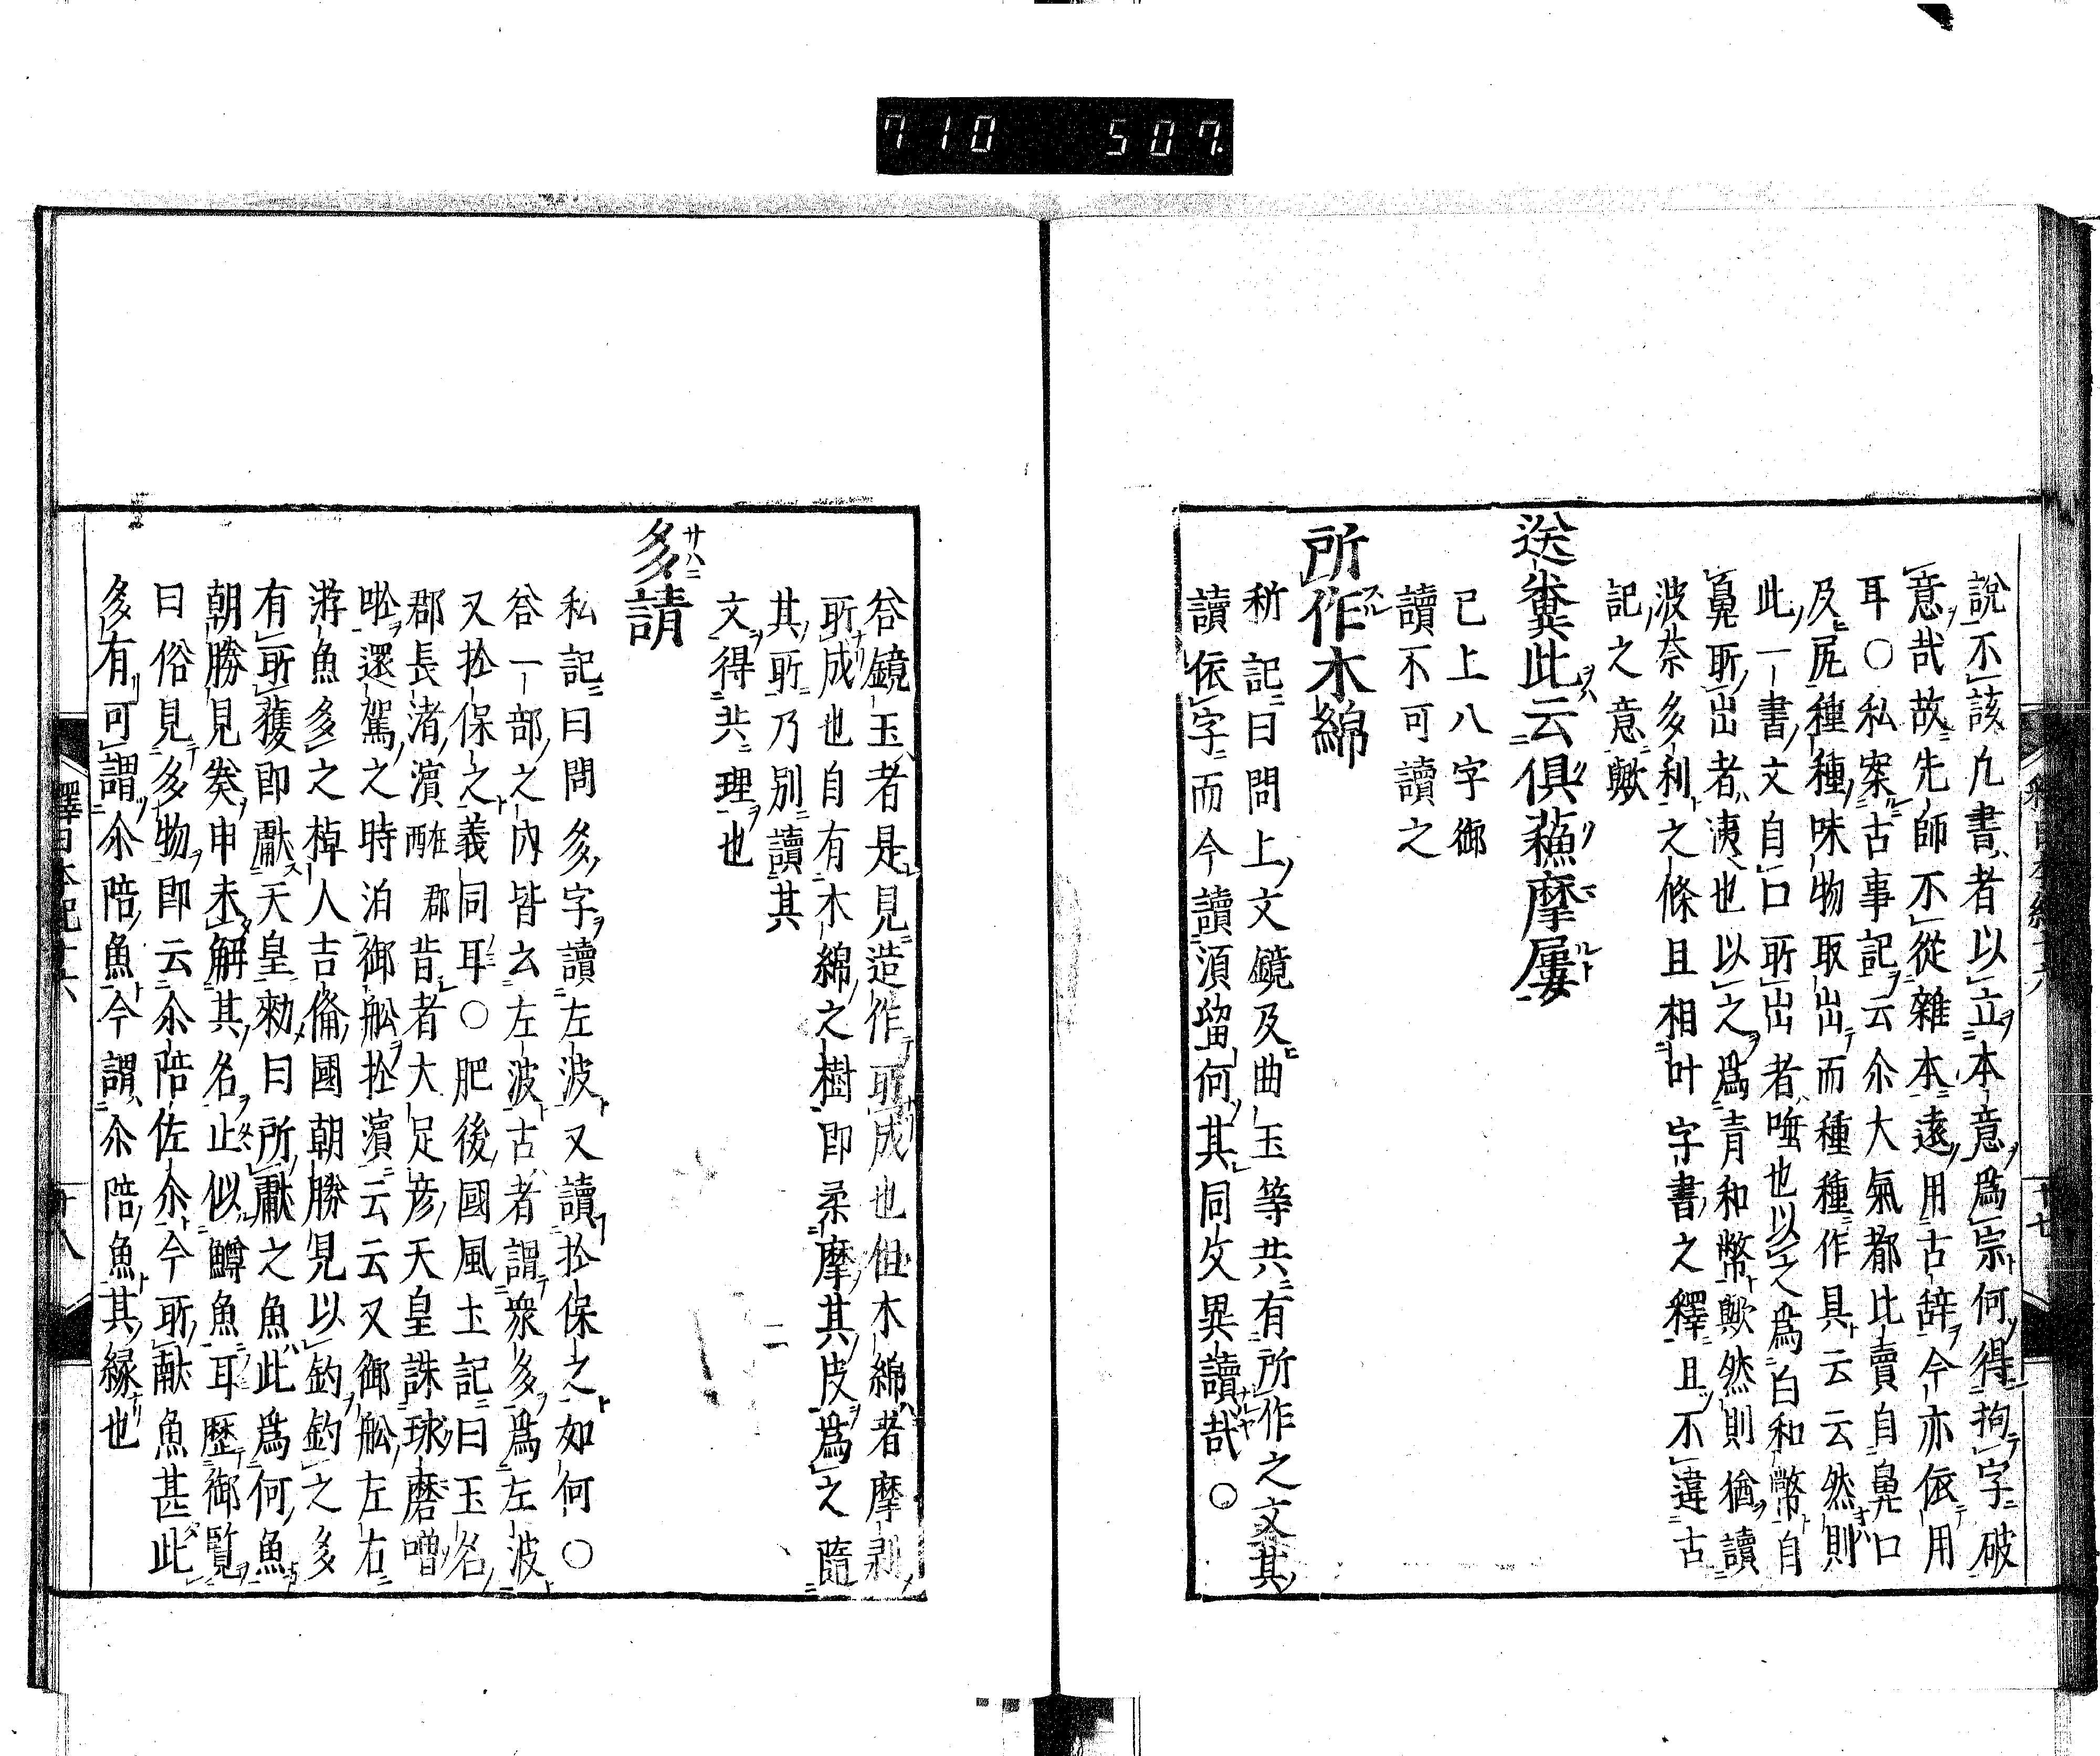 710 507.
說不該九書者以立本意爲宗何得拘字破
意哉故先師不從雜本遠用古辞今亦依用
耳○私案古事記云尒大氣都比賣自鼻口
及尻種種味物取出而種種作具云云然則
此一書文自口所出者㗀也以之爲白和幣自
鼻所出者洟也以之爲青和幣歟然則猶讀
波奈多利之條且相叶字書之釋且不違古
記之意歟
送糞此云倶蘓摩屢
已上八字御
讀不可讀之
所作木綿
新記曰問上文鏡及曲玉等共有所作之文其
讀依字而今讀湏留何其同攵異讀哉○
荅鏡玉者是見造作所成也但木綿者摩剥
所成也自有木綿之樹即柔摩其皮爲之隨
其所乃別讀其
文得共理也
多請
私記曰問多字讀左波又讀於保之如何○
荅一部之内皆云左波古者謂衆多爲左波
又於保之義同耳○肥後國風土記曰玉名
郡長渚濱 郡昔者大足彦天皇誅球磨噌
唹還駕之時泊御舩於濱云云又御舩左右
游魚多之棹人吉備國朝勝見以釣釣之多
有所獲即獻天皇勑曰所獻之魚此爲何魚
朝勝見奏申未解其名止似鱒魚耳歴御覧
曰俗見多物即云尒陪佐尒今所獻魚甚此
多有可謂尒陪魚今謂尒陪魚其縁也
釋日本紀十六
十八